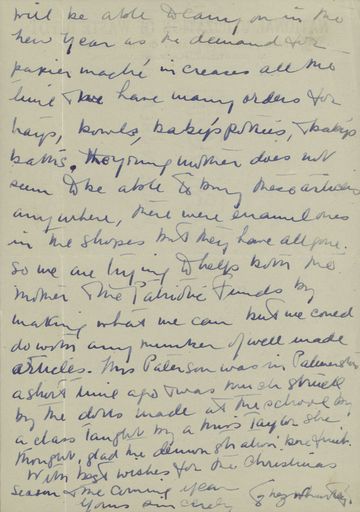 will be able to carry on in the
new year as the demand for
papier maché increases all the
time & we have many orders for
trays, bowls, baby's potties, & baby's
baths. The young mother does not
seem to be able to buy these articles
anywhere, there were enamel ones
in the shops but they have all gone.
So we are trying to help both the
mother & the Patriotic Funds by
making what we can but we could
do with any number of well made
articles. Mrs Paterson was in Palmerston
a short time ago & was much struck
by the dolls made at the school by
a class taught by a Miss Taylor she
thought, glad the demonstration
With best wishes for the Christmas
season & the coming year
Yours sincerely